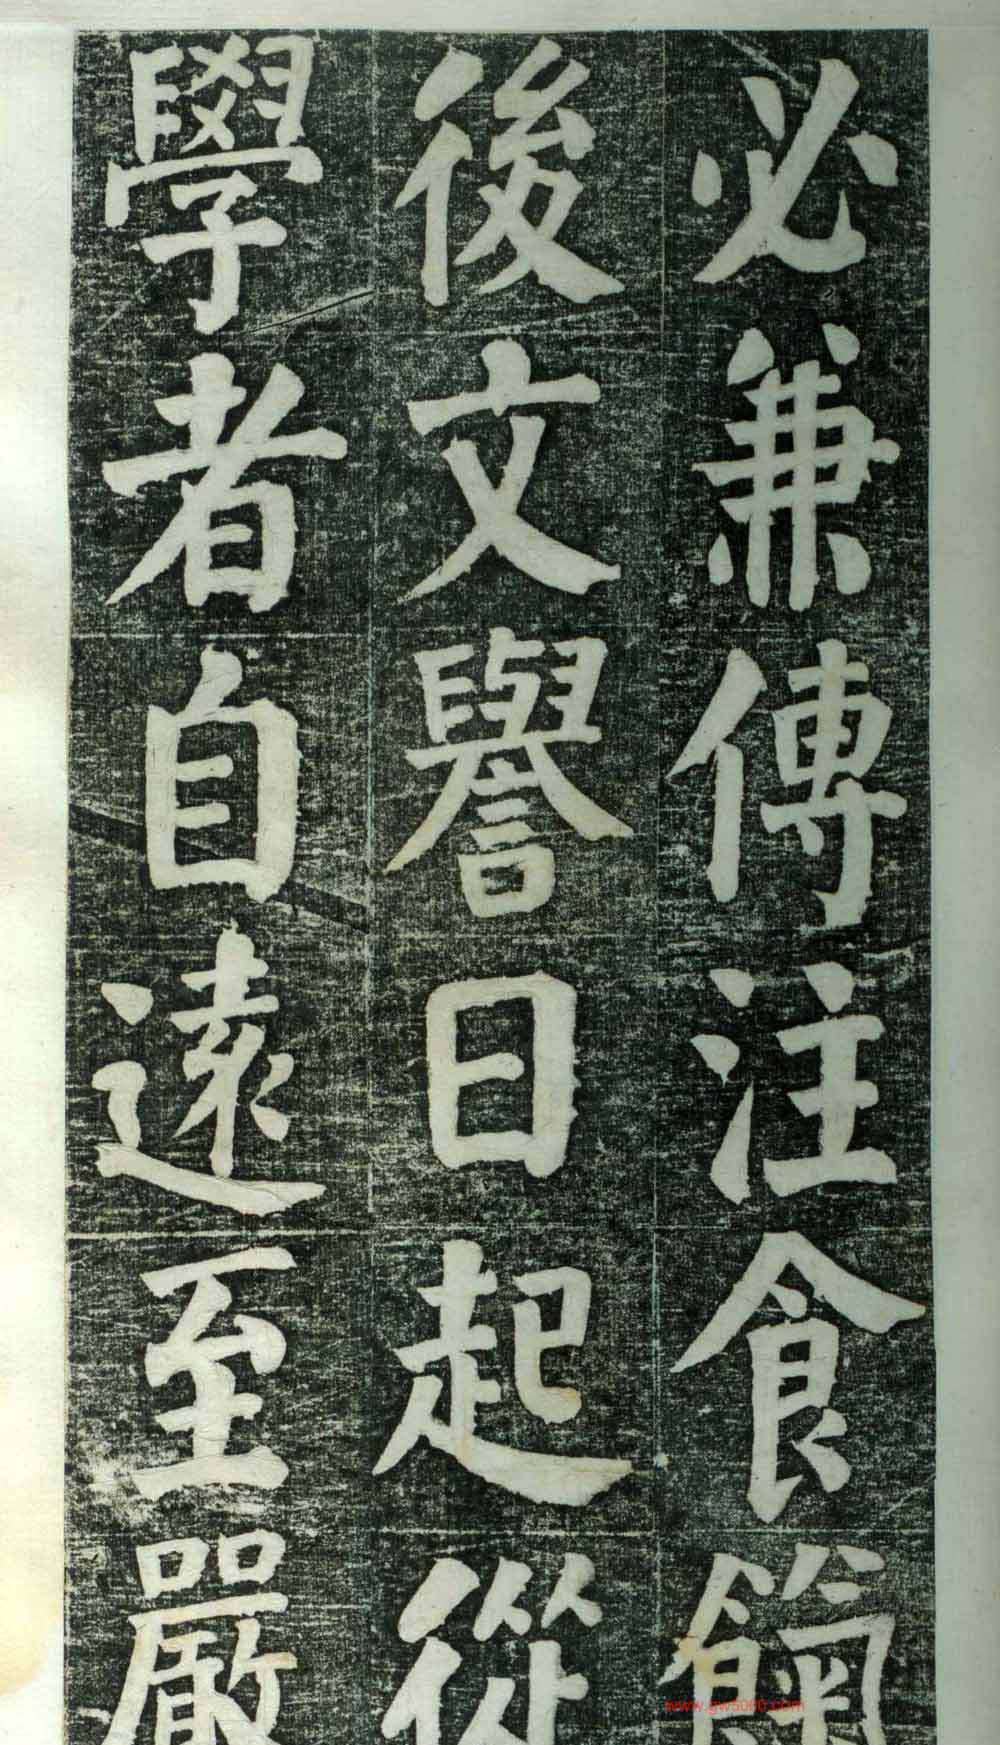 必兼傳注食餼
後文譽日起從
學者自遠至嚴
www.gw5000.com